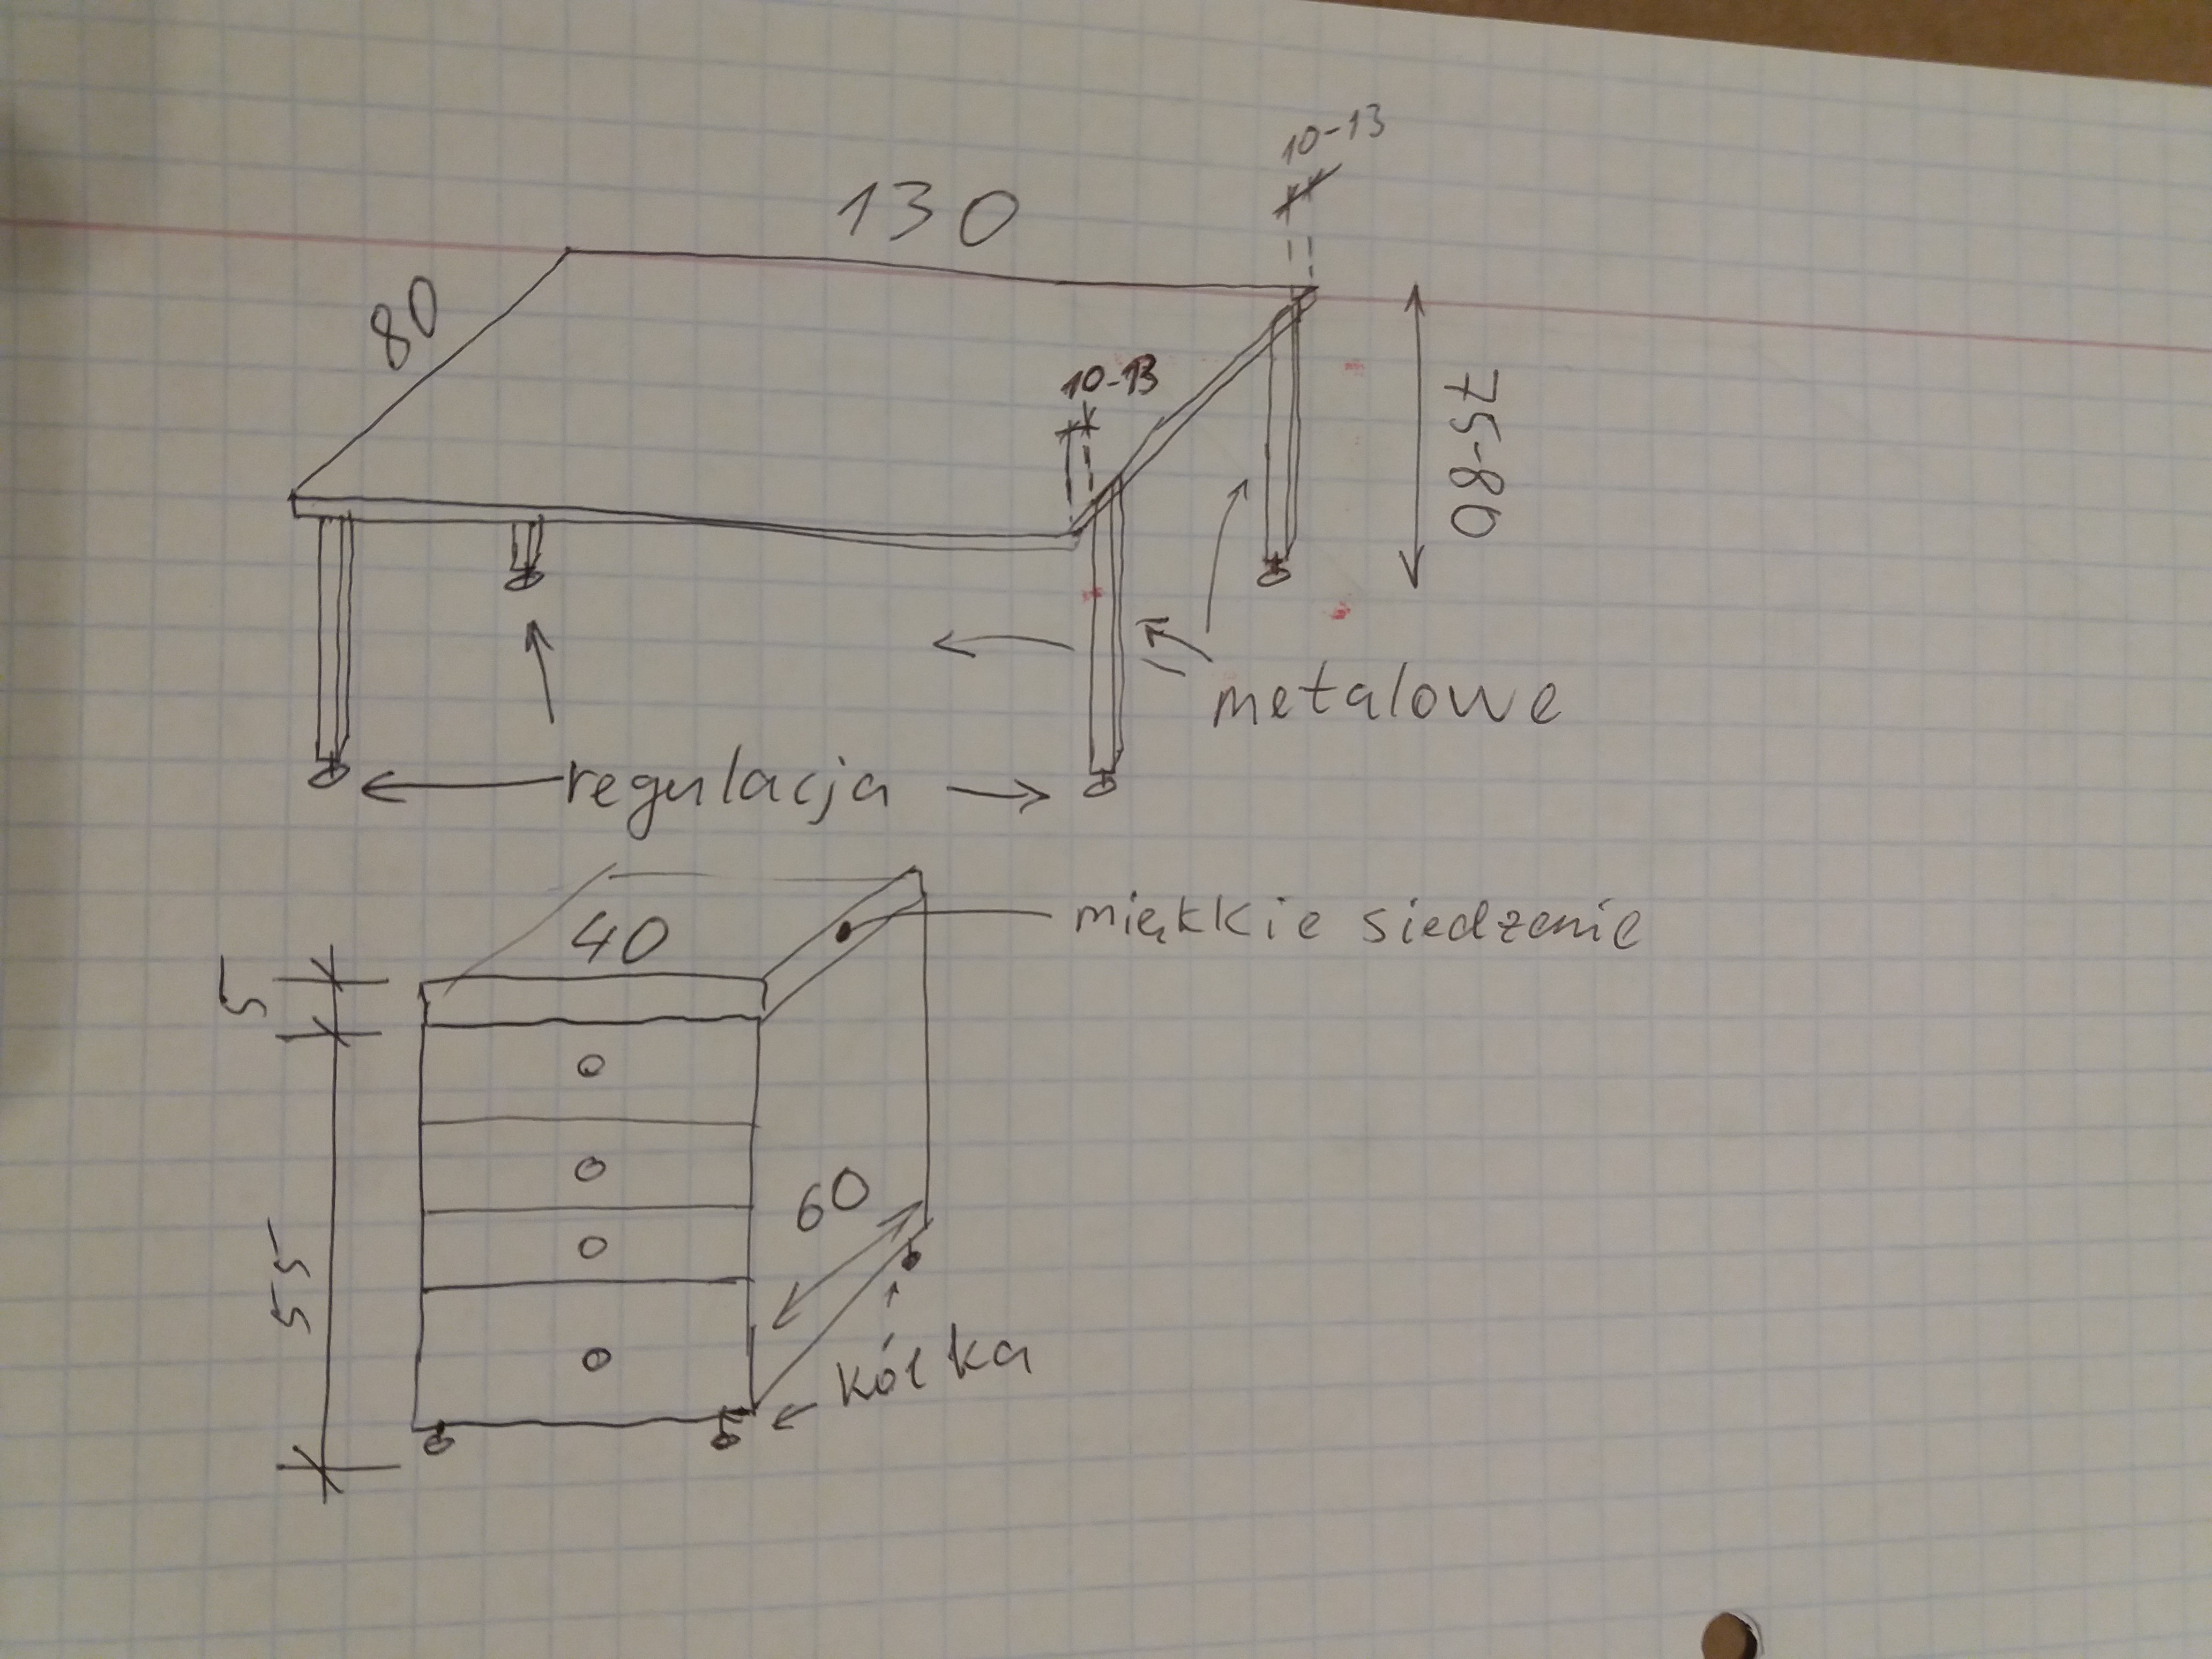 10-13
130
80
10-13
75-80
metalowe
regulacja
miękkie siedzenie
40
5
60
55
kółka